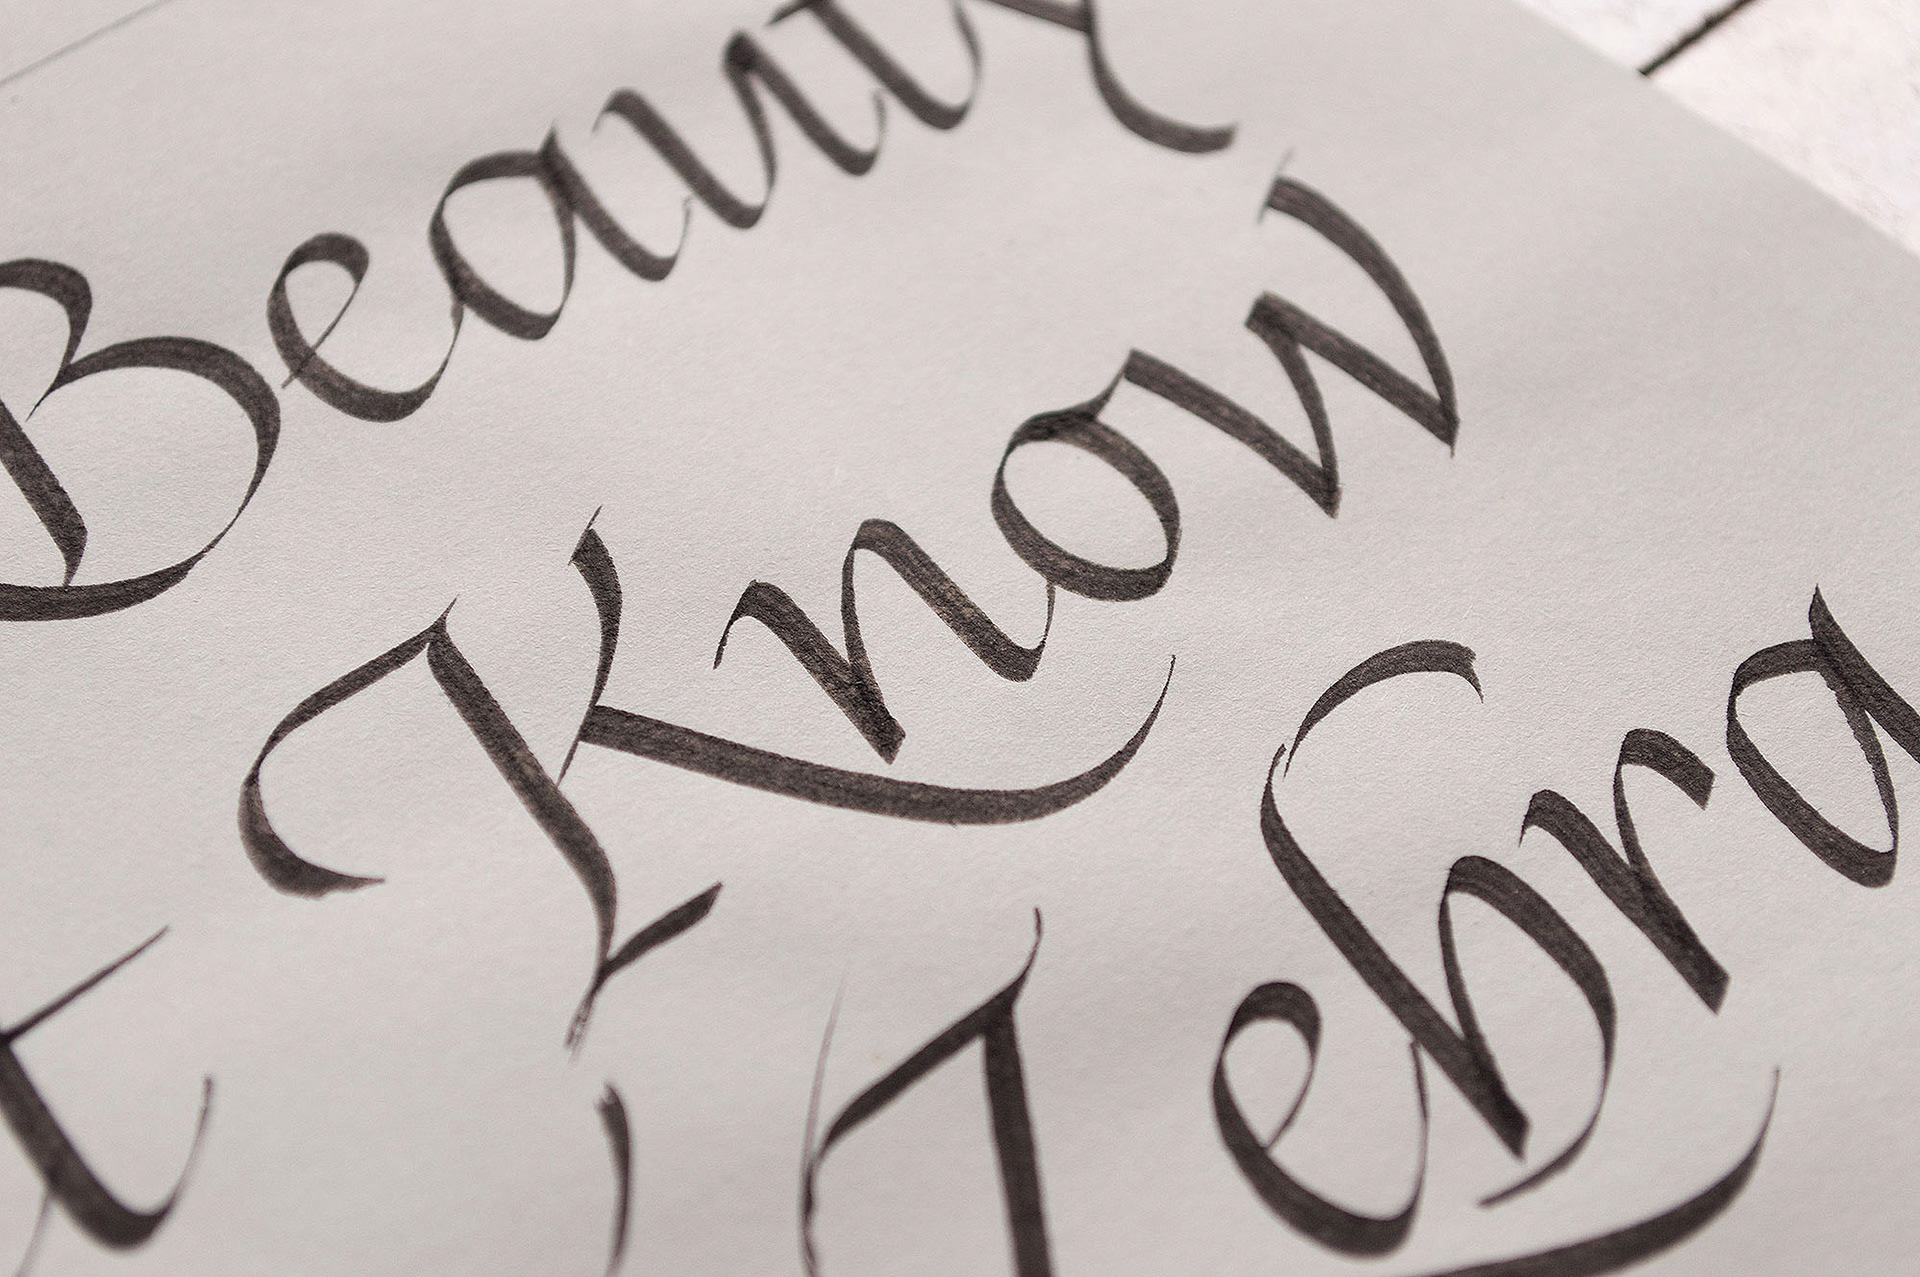 Beaut
Know
t
Zebra